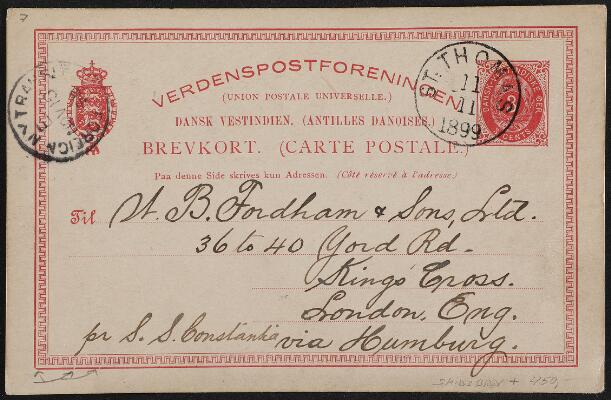 7
VERDENSPOSTFORENINGEN
(UNION POSTALE UNIVERSELLE.)
DANSK VESTINDIEN. (ANTILLES DANOISES.)
BREVKORT. (CARTE POSTALE.)
Paa denne Side skrives kun Adressen. (Côté réservé à l'adresse.)
ST. THOMAS
11
11
1899
CENTS
TRANSIT
Til W. B. Fordham & Sons, Ltd.
36 to 40 York Rd.
King's Cross.
London, Eng.
pr S. S. Constantia via Hamburg.
+ 450,-